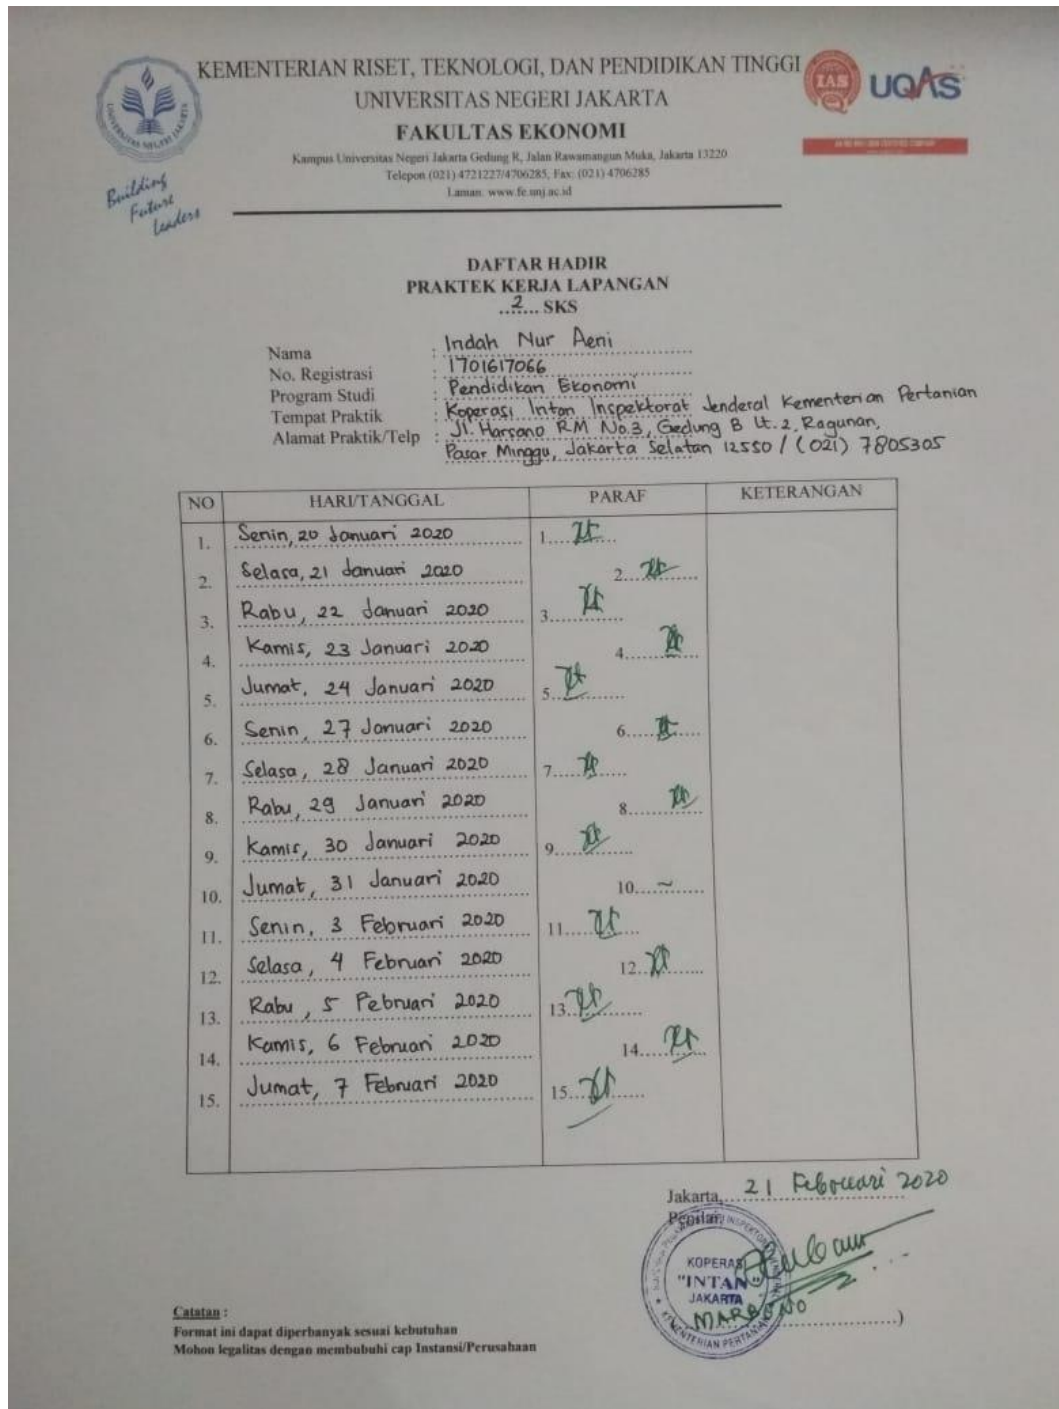 KEMENTERIAN RISET, TEKNOLOGI, DAN PENDIDIKAN TINGGI
UNIVERSITAS NEGERI JAKARTA
FAKULTAS EKONOMI
Kampus Universitas Negeri Jakarta Gedung R, Jalan Rawamangun Muka, Jakarta 13220
Telepon (021) 4721227/4706285, Fax: (021) 4706285
Laman: www.fe.unj.ac.id
UNIVERSITAS NEGERI JAKARTA
Building
Future
Leaders
IAS
UQAS
DAFTAR HADIR
PRAKTEK KERJA LAPANGAN
..2.... SKS
Nama : Indah Nur Aeni
No. Registrasi : 1701617066
Program Studi : Pendidikan Ekonomi
Tempat Praktik : Koperasi Intan Inspektorat Jenderal Kementerian Pertanian
Alamat Praktik/Telp : Jl. Harsono RM No.3, Gedung B Lt. 2, Ragunan,
Pasar Minggu, Jakarta Selatan 12550 / (021) 7805305
NO HARI/TANGGAL PARAF KETERANGAN
1. Senin, 20 Januari 2020 1.
2. Selasa, 21 Januari 2020 2.
3. Rabu, 22 Januari 2020 3.
4. Kamis, 23 Januari 2020 4.
5. Jumat, 24 Januari 2020 5.
6. Senin, 27 Januari 2020 6.
7. Selasa, 28 Januari 2020 7.
8. Rabu, 29 Januari 2020 8.
9. Kamis, 30 Januari 2020 9.
10. Jumat, 31 Januari 2020 10. ~
11. Senin, 3 Februari 2020 11.
12. Selasa, 4 Februari 2020 12.
13. Rabu, 5 Februari 2020 13.
14. Kamis, 6 Februari 2020 14.
15. Jumat, 7 Februari 2020 15.
Jakarta, 21 Februari 2020
Penilai,
KOPERASI
"INTAN"
JAKARTA
KEMENTERIAN PERTANIAN
MARBONO )
Catatan :
Format ini dapat diperbanyak sesuai kebutuhan
Mohon legalitas dengan membubuhi cap Instansi/Perusahaan